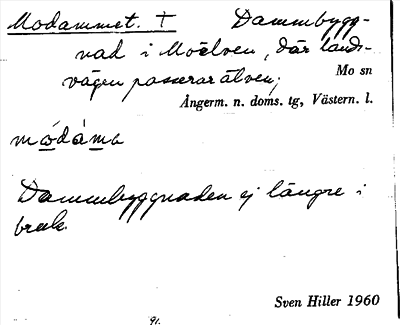 Modammet. † Dammbygg-
nad i Moälven, där lands-
vägen passerar älven;
Mo sn
Ångerm. n. doms. tg, Västern. l.
módàma
Dammbyggnaden ej längre i
bruk.
Sven Hiller 1960
91.